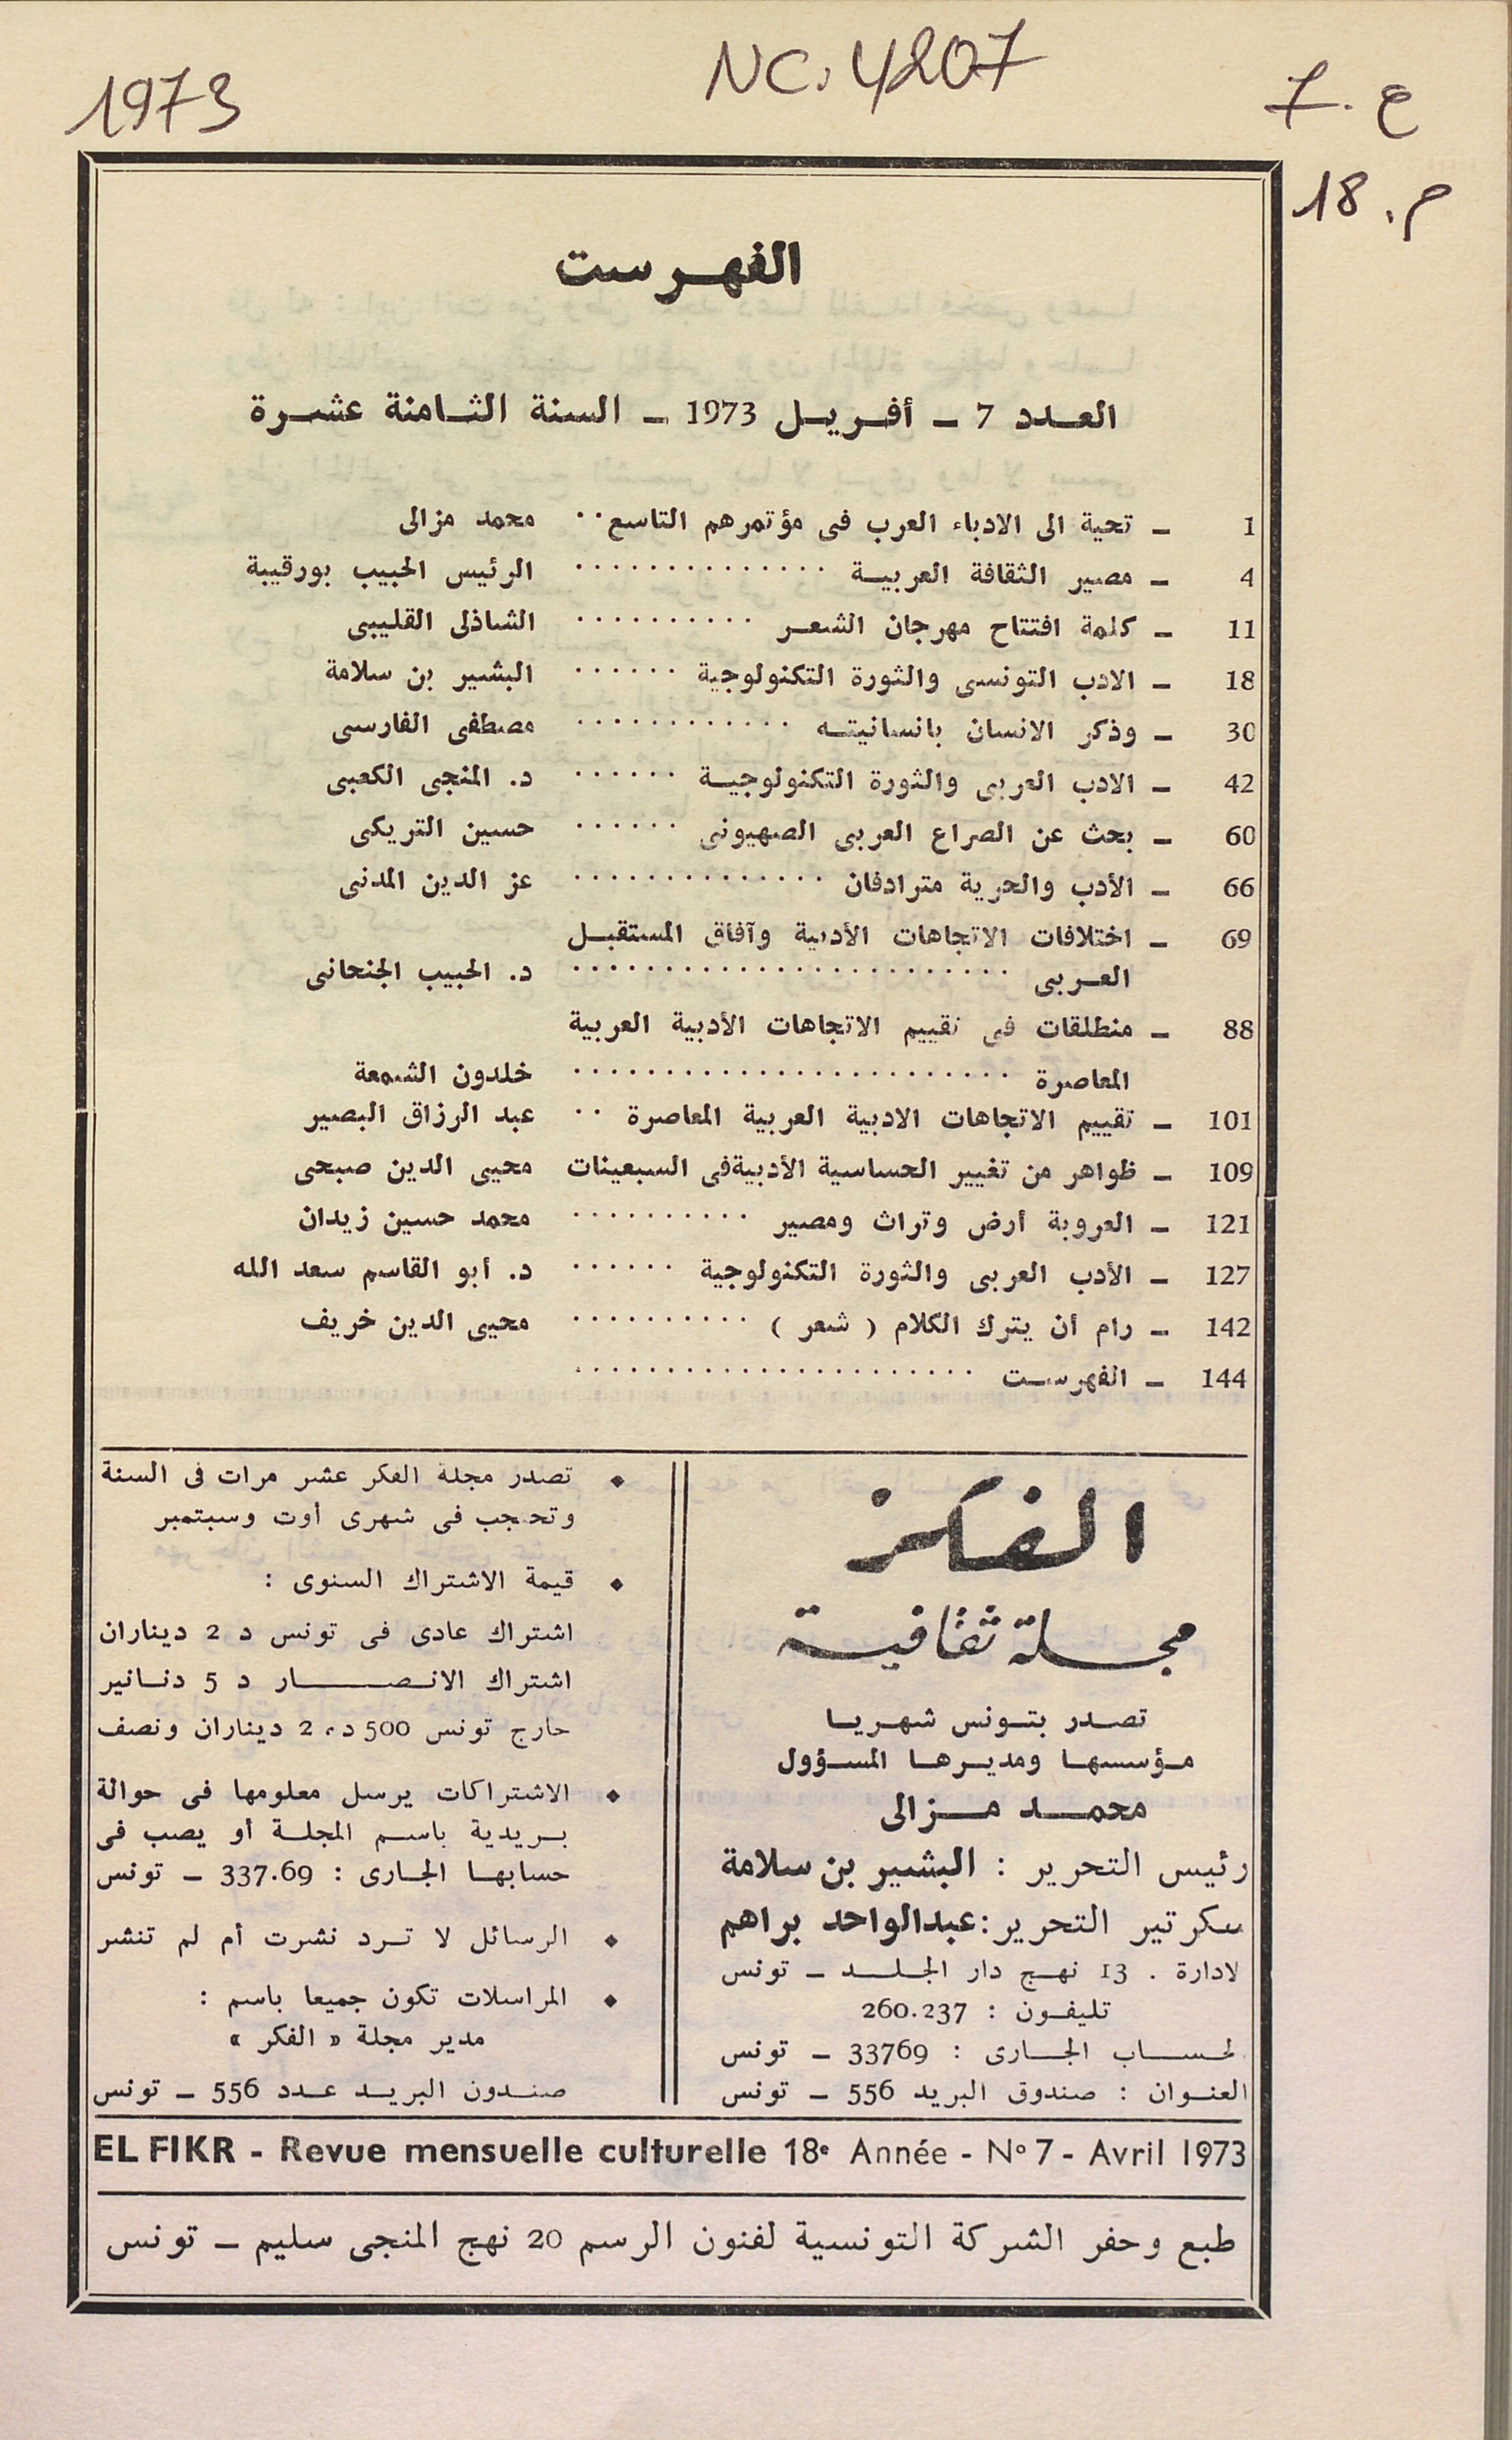 1973
NC. 4207
ع . 7
م . 18
الفهـرست
العـدد 7 ـ أفـريـل 1973 ـ السنة الثـامنة عشـرة
1 ـ تحية الى الادباء العرب فى مؤتمرهم التاسع .. محمد مزالى
4 ـ مصير الثقافة العربيـة .............. الرئيس الحبيب بورقيبة
11 ـ كلمة افتتاح مهرجان الشعـر .......... الشاذلى القليبى
18 ـ الادب التونسى والثورة التكنولوجية ...... البشير بن سلامة
30 ـ وذكر الانسان بانسانيتـه ............ مصطفى الفارسى
42 ـ الادب العربى والثورة التكنولوجيـة ...... د. المنجى الكعبى
60 ـ بحث عن الصراع العربى الصهيونى ...... حسين التريكى
66 ـ الأدب والحرية مترادفان .............. عز الدين المدنى
69 ـ اختلافات الاتجاهات الأدبية وآفاق المستقبـل
العـربى ........................ د. الحبيب الجنحانى
88 ـ منطلقات فى تقييم الاتجاهات الأدبية العربية
المعاصرة ........................ خلدون الشمعة
101 ـ تقييم الاتجاهات الادبية العربية المعاصرة .. عبد الرزاق البصير
109 ـ ظواهر من تغيير الحساسية الأدبيةفى السبعينات محيى الدين صبحى
121 ـ العروبة أرض وتراث ومصير .......... محمد حسين زيدان
127 ـ الأدب العربى والثورة التكنولوجية ...... د. أبو القاسم سعد الله
142 ـ رام أن يترك الكلام ( شعر ) .......... محيى الدين خريف
144 ـ الفهرسـت ......................
الفكر
مجلة ثقافية
تصـدر بتـونس شهـريـا
مـؤسسهـا ومديـرهـا المسـؤول
محمـد مـزالى
رئيس التحرير : البشير بن سلامة
سكرتير التحرير:عبدالواحد براهم
لادارة . 13 نهـج دار الجلـد ـ تونس
تليفـون : 260.237
لحسـاب الجـارى : 33769 ـ تونس
العنـوان : صندوق البريد 556 ـ تونس
♦ تصدر مجلة الفكر عشر مرات فى السنة
وتحتجب فى شهرى أوت وسبتمبر
♦ قيمة الاشتراك السنوى :
اشتراك عادى فى تونس د 2 ديناران
اشتراك الانـصـار د 5 دنـانير
خارج تونس 500 د، 2 ديناران ونصف
♦ الاشتراكات يرسل معلومها فى حوالة
بـريدية باسـم المجلـة أو يصب فى
حسابهـا الجـارى : 337.69 ـ تونس
♦ الرسائل لا تـرد نشرت أم لم تنشر
♦ المراسلات تكون جميعا باسم :
مدير مجلة « الفكر »
صنـدوق البريـد عـدد 556 ـ تونس
EL FIKR - Revue mensuelle culturelle 18e Année - No 7 - Avril 1973
طبع وحفر الشركة التونسية لفنون الرسم 20 نهج المنجى سليم ـ تونس